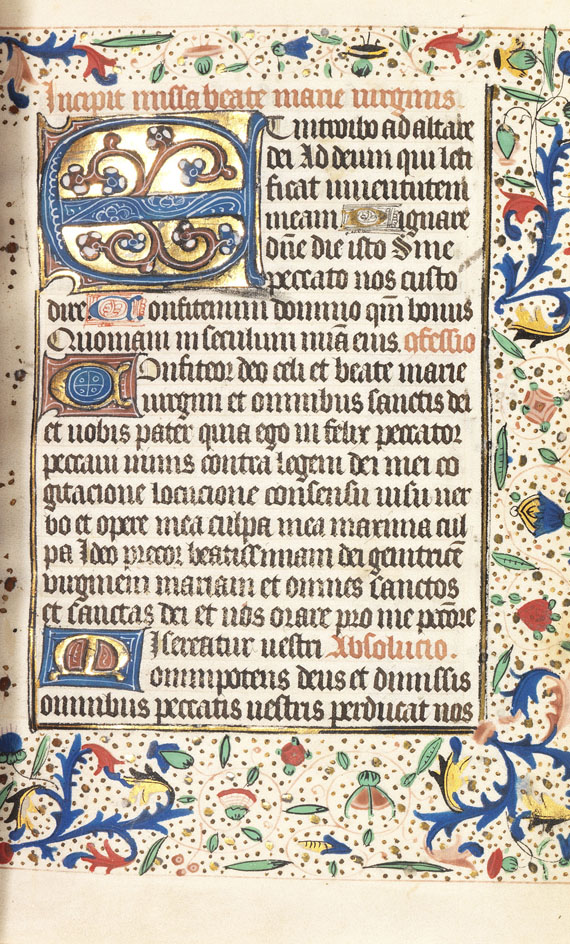 Incipit missa beate marie virginis.
Et introibo ad altare
dei Ad deum qui leti
ficat iuuentutem
meam Dignare
dn̄e die isto Sine
peccato nos custo
dire Confitemini domino qm̄ bonus
Quoniam in seculum mīa eius. ꝯfessio
Confiteor deo celi et beate marie
uirgini et omnibus sanctis dei
et uobis pater quia ego in felix peccator
peccaui nimis contra legem dei mei co
gitacione locucione consensu uisu uer
bo et opere mea culpa mea maxima cul
pa Ideo precor beatissimam dei genitricē
uirginem mariam et omnes sanctos
et sanctas dei et uos orare pro me pctōre
Misereatur uestri Absolucio.
omnipotens deus et dimissis
omnibus peccatis uestris perducat nos